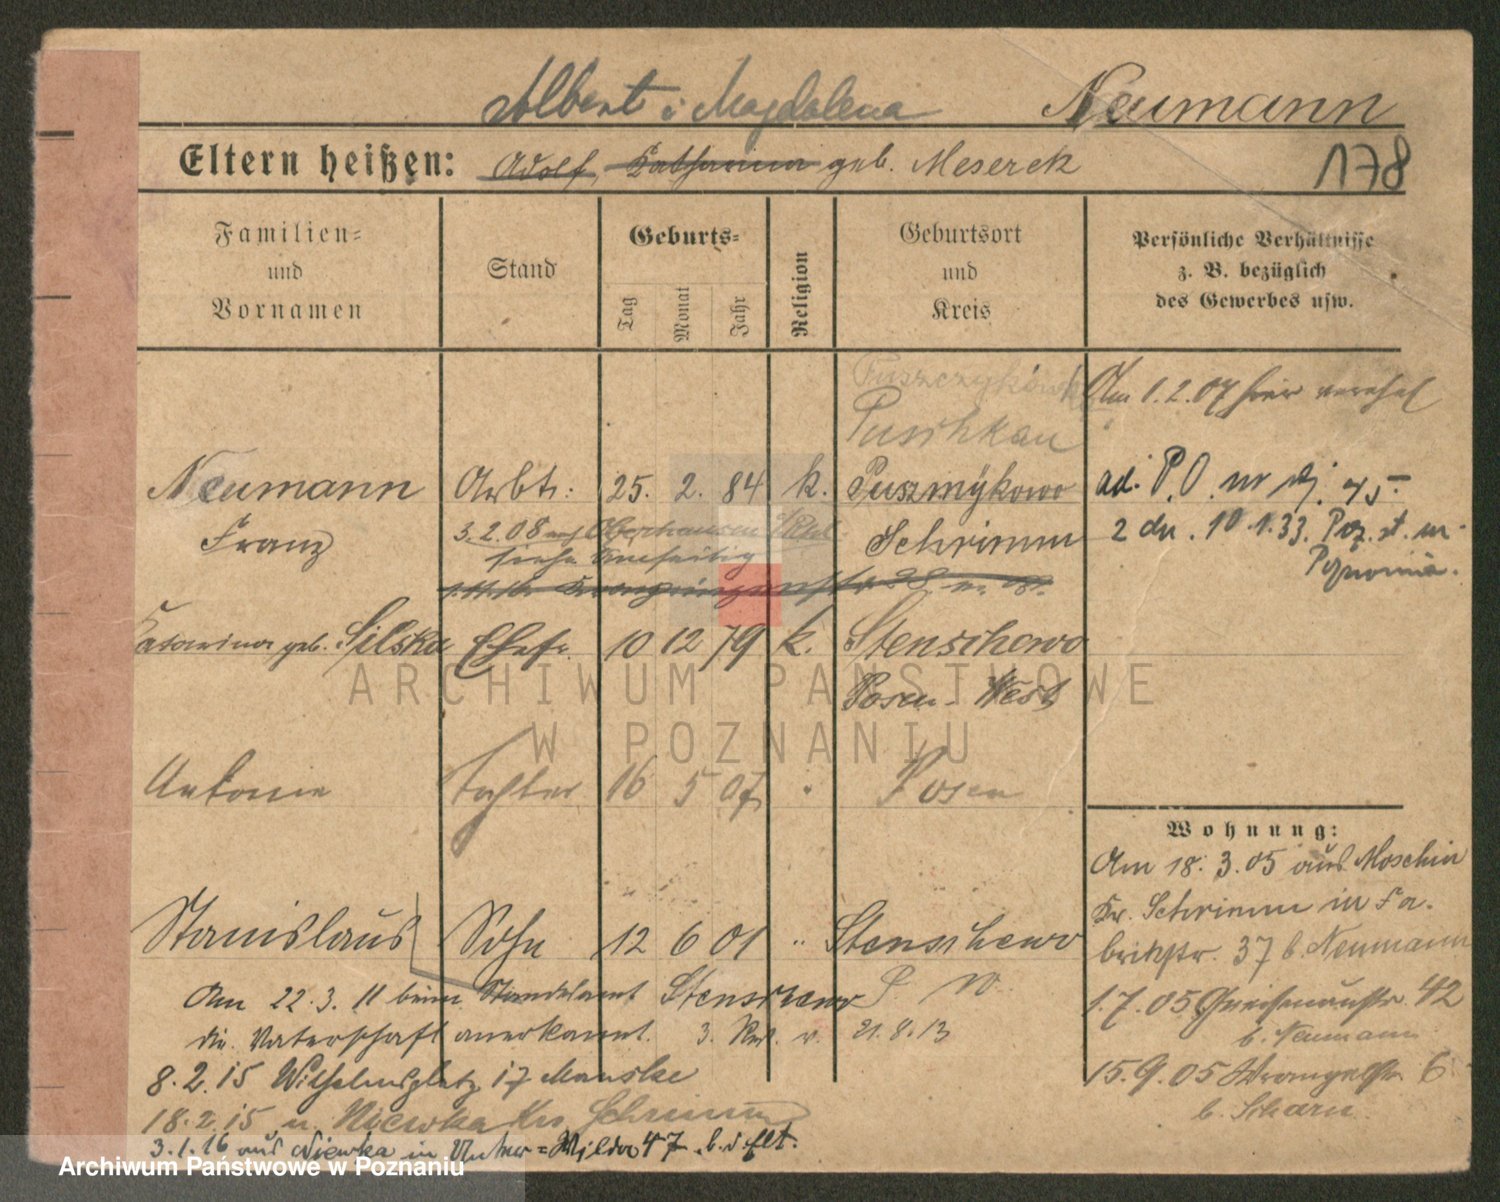 Albert i Magdalena Neumann
Eltern heißen: Adolf, Katharina geb. Meserek 178
Familien- und Vornamen
Stand
Geburts-
Tag Monat Jahr
Religion
Geburtsort und Kreis
Persönliche Verhältnisse z. B. bezüglich des Gewerbes usw.
Puszczykowo
Puschkau
Am 1.2.07 hier verehel
Neumann Arbtr. 25. 2. 84 k. Puszczykowo
Franz Schrimm
3.2.08 nach Oberhausen
siehe
ad. P.O. nr
2 dn. 10.1.33. Poz. st. m.
Poznania.
Katarina geb. Silska Ehefr. 10 12 79 k. Stenschewo
Posen-West
Antonie Tochter 16 5 07 " Posen
Stanislaus Sohn 12 6 01 " Stenschewo
P W.
Am 22.3.11 beim Standesamt Stenschewo
die Vaterschaft anerkannt. 21.8.13
8.2.15 Wilhelmsplatz 17 Manske
18.2.15 n. Niewka Kr. Schrimm
3.1.16 aus Niewka in Unter-Wilda 47 b. d. Elt.
Wohnung:
Am 18.3.05 aus Moschin
Kr. Schrimm in Fa-
brikstr. 37 b. Neumann
1.7.05 Gneisenaustr. 42
b. Neumann
15.9.05 Wrangelstr. 6
b.
ARCHIWUM PAŃSTWOWE
W POZNANIU
Archiwum Państwowe w Poznaniu